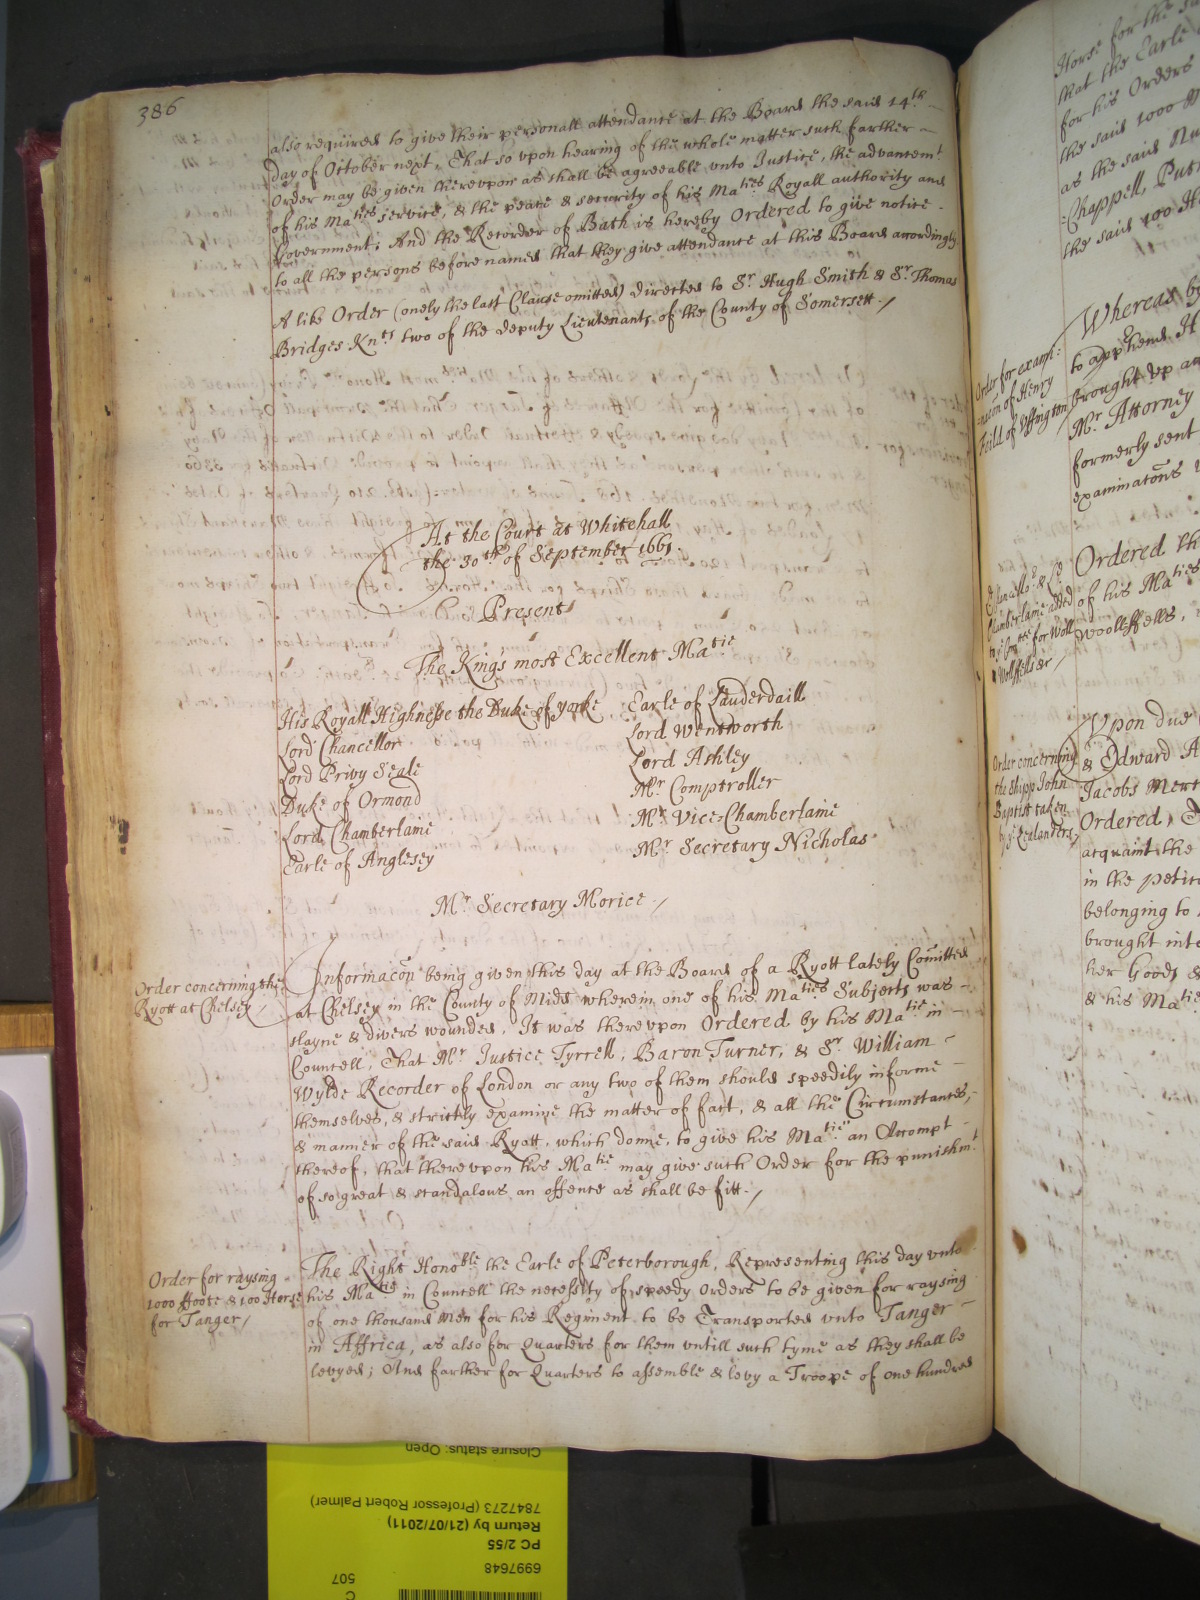 386
also required to give their personall attendance at the Board the said 14th
day of October next, That so vpon hearing of the whole matter such farther
Order may be given therevpon as shall be agreeable vnto Justice, the advancemt
of his Maties service, & the peace & security of his Maties Royall authority and
Government; And the Recorder of Bath is hereby Ordered to give notice
to all the persons before named that they give attendance at this Board accordingly
A like Order (onely the last Clause omitted) directed to Sr Hugh Smith & Sr Thomas
Bridges Knts two of the deputy Lieutenants of the County of Somersett
At the Court at Whitehall
the 30th of September 1661.
Present
The Kings most Excellent Matie
His Royall Highnesse the Duke of yorke
Lord Chancellor
Lord Privy Seale
Duke of Ormond
Lord Chamberlaine
Earle of Anglesey
Earle of Lauderdaill
Lord Wentworth
Lord Ashley
Mr Comptroller
Mr Vice-Chamberlaine
Mr Secretary Nicholas
Mr Secretary Morice
Order concerning the
Ryott at Chelsey
Informacon being given this day at the Board of a Ryott lately Comitted
at Chelsey in the County of Midd wherein one of his Maties Subjects was
slayne & divers wounded, It was therevpon Ordered by his Matie in
Councell, That Mr Justice Tyrrell, Baron Turner, & Sr William
Wylde Recorder of London or any two of them should speedily informe
themselves, & strictly examine the matter of fact, & all the Circumstances,
& manner of the said Ryott, which donne, to give his Matie an Accompt
thereof, that therevpon his Matie may give such Order for the punishmt
of so great & scandalous an offence as shall be fitt.
Order for raysing
1000 ffoote & 100 Horse
for Tanger
The Right Honoble the Earle of Peterborough, Representing this day vnto
his Matie in Councell the necessity of speedy Orders to be given for raysing
of one thousand men for his Regiment to be Transported vnto Tanger
in Affrica, as also for Quarters for them vntill such tyme as they shall be
levyed; And farther for Quarters to assemble & levy a Troope of one hundred
Horse for the
that the Earle
for his Orders
the said 1000
as the said
Chappell, Putn
the said 100
Order for exami=
=nacon of Henry
ffeild of Vffington
Whereas by
to apprhend H
brought vp an
Mr Attorney
formerly sent
examinatons
Chamberlaine added
for Woll
Wollffells &c
Ordered th
of his Maties
woollffells,
Order concerning
the Shipp John
Baptist taken
by ye Zealanders
Vpon due
& Edward A
Jacobs Merc
Ordered, T
acquaint the
in the petiti
belonging to
brought into
her Goods &
& his Matie
Closure status: Open
7847273 (Professor Robert Palmer)
Return by (21/07/2011)
PC 2/55
6997648
507
C